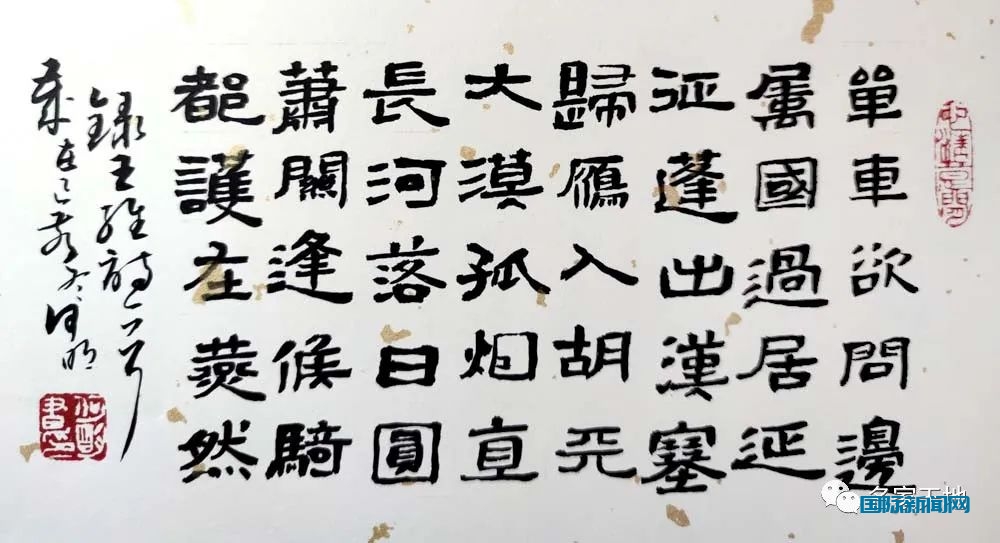 單車欲問邊
屬國過居延
征蓬出漢塞
歸鴈入胡天
大漠孤烟直
長河落日圓
蕭關逢候騎
都護在燕然
錄王維詩一首
歲在
名家天地
国际新闻网